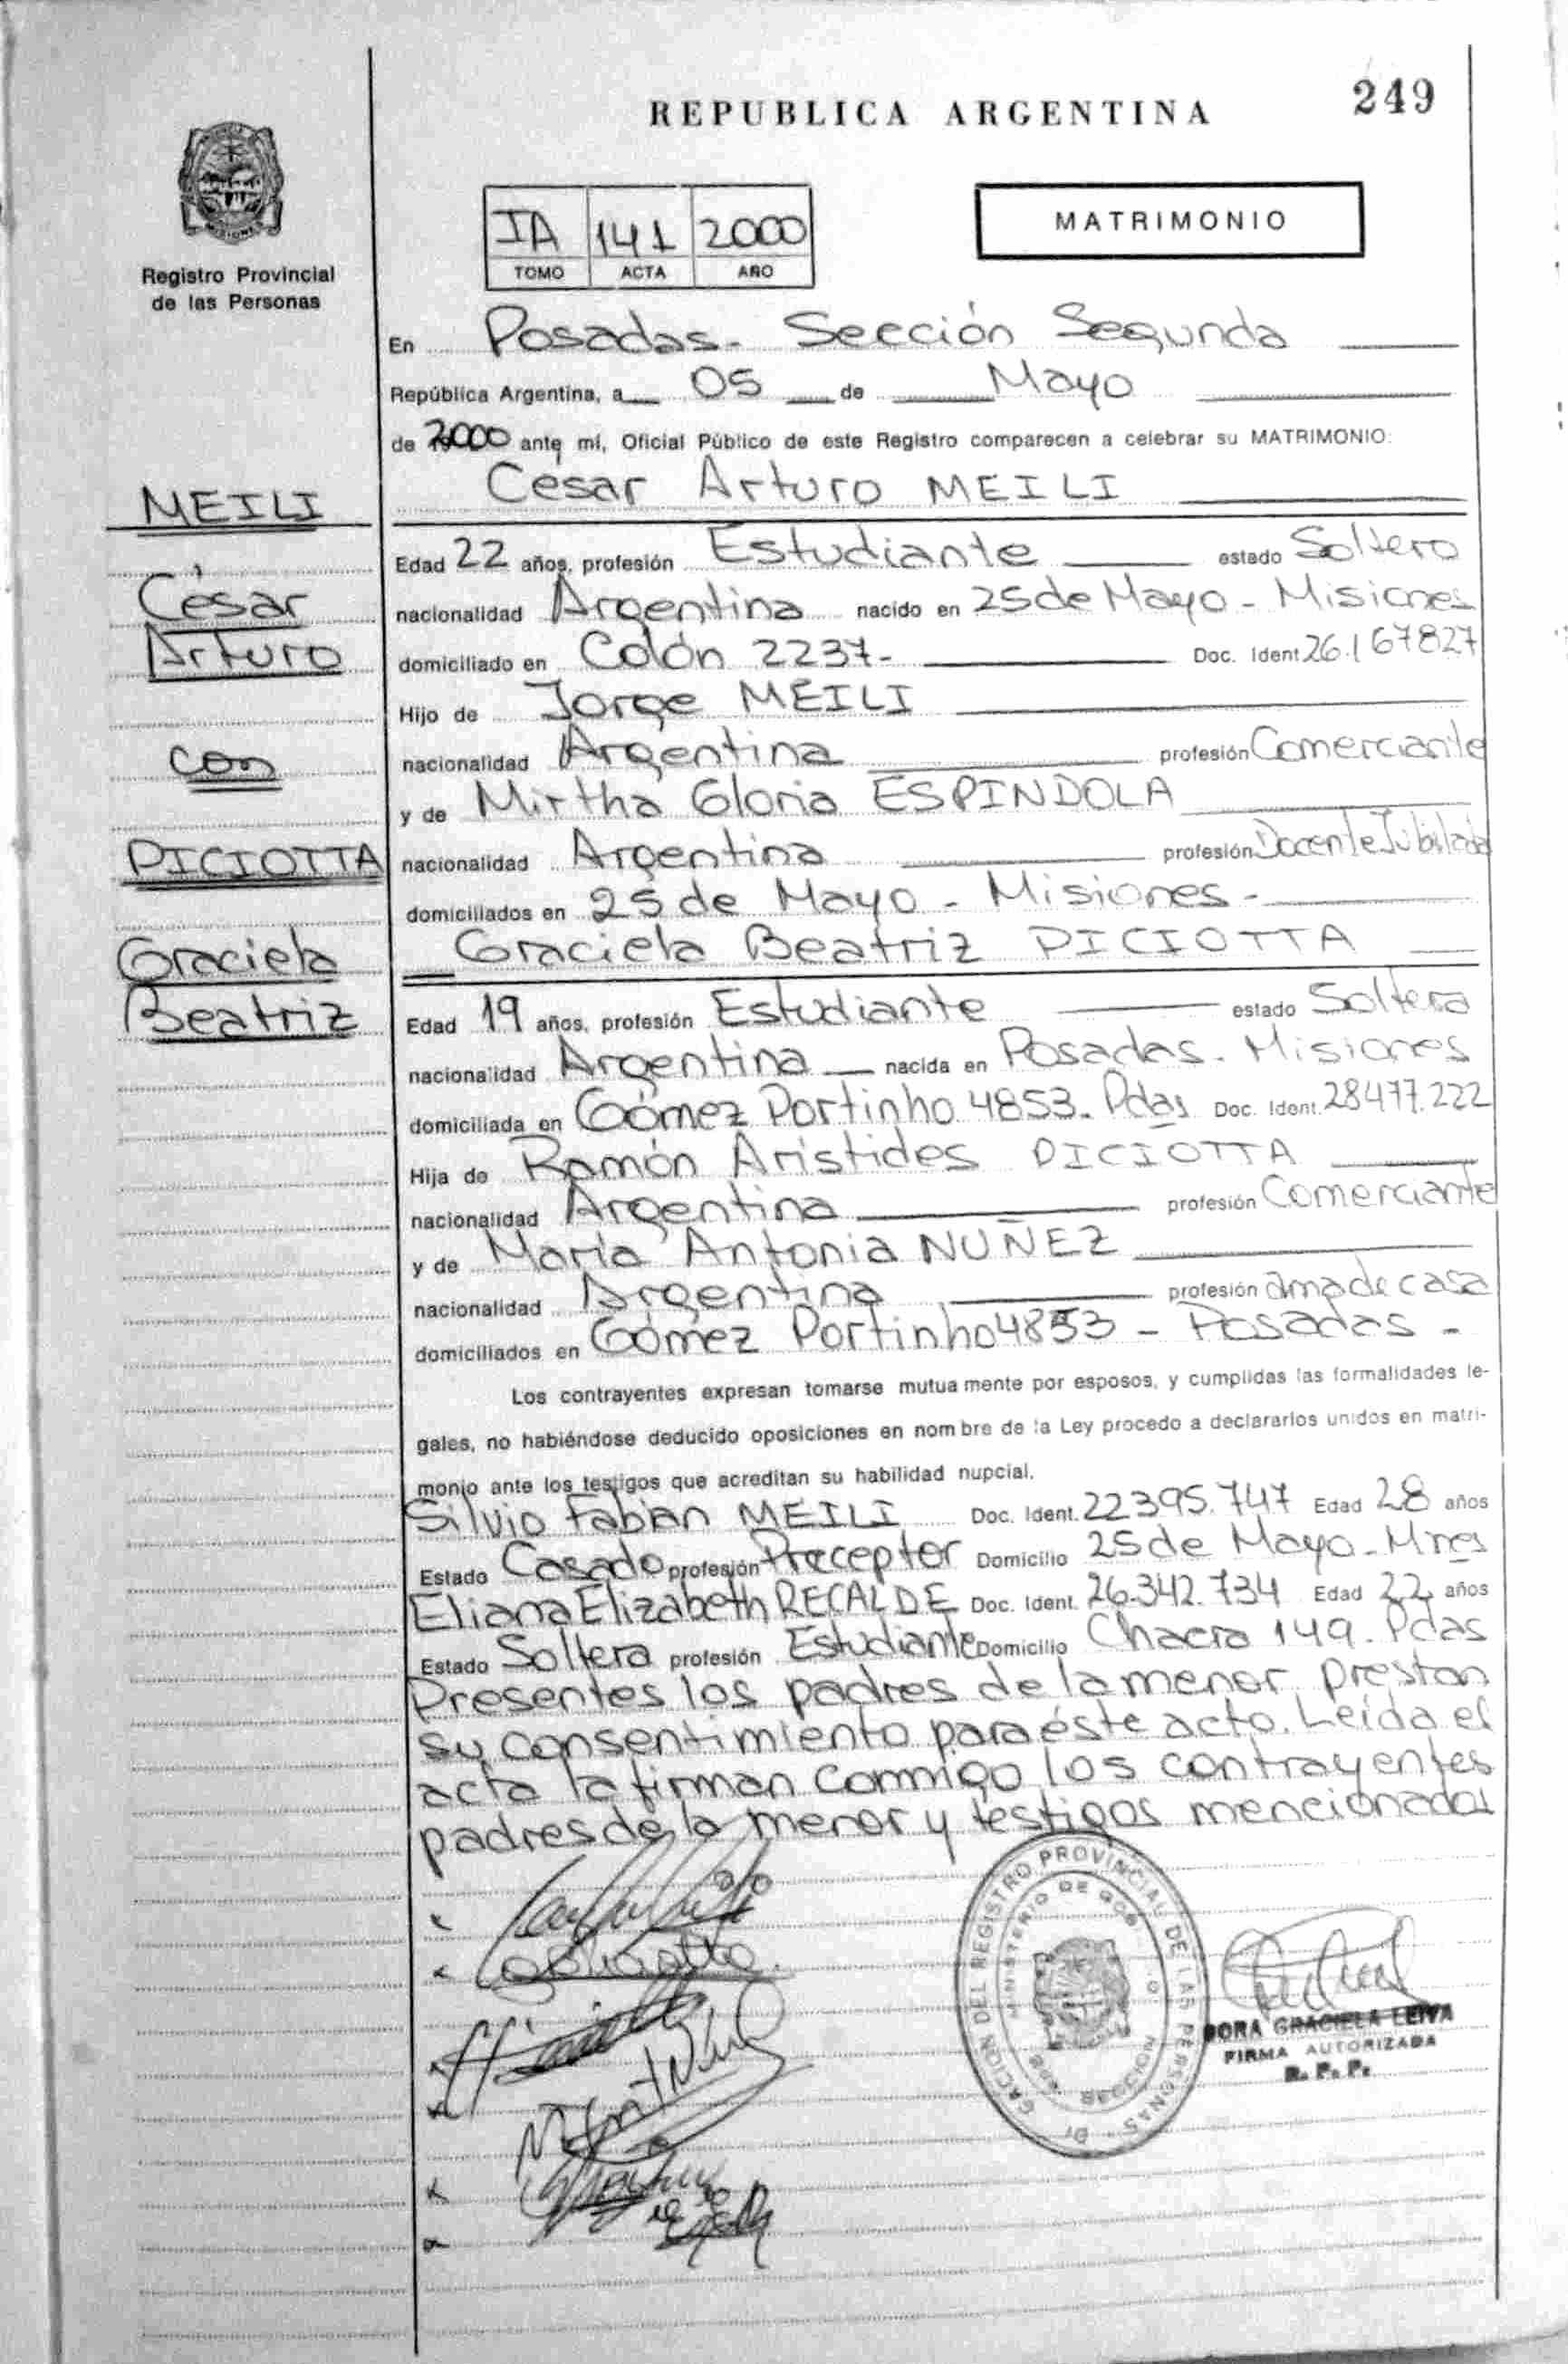 249
REPUBLICA ARGENTINA
MISIONES
Registro Provincial
de las Personas
IA 141 2000
TOMO ACTA AÑO
MATRIMONIO
En Posadas - Sección Segunda
República Argentina, a 05 de Mayo
de 2000 ante mí, Oficial Público de este Registro comparecen a celebrar su MATRIMONIO:
César Arturo MEILI
MEILI
César
Arturo
con
PICIOTTA
Graciela
Beatriz
Edad 22 años, profesión Estudiante estado Soltero
nacionalidad Argentina nacido en 25 de Mayo - Misiones
domiciliado en Colón 2237- Doc. Ident 26.167827
Hijo de Jorge MEILI
nacionalidad Argentina profesión Comerciante
y de Mirtha Gloria ESPINDOLA
nacionalidad Argentina profesión Docente Jubilada
domiciliados en 25 de Mayo - Misiones -
Graciela Beatriz PICIOTTA
Edad 19 años, profesión Estudiante estado Soltera
nacionalidad Argentina nacida en Posadas - Misiones
domiciliada en Gómez Portinho 4853 - Pdas Doc. Ident. 28477.222
Hija de Ramón Arístides PICIOTTA
nacionalidad Argentina profesión Comerciante
y de María Antonia NUÑEZ
nacionalidad Argentina profesión ama de casa
domiciliados en Gómez Portinho 4853 - Posadas -
Los contrayentes expresan tomarse mutuamente por esposos, y cumplidas las formalidades le-
gales, no habiéndose deducido oposiciones en nombre de la Ley procedo a declararlos unidos en matri-
monio ante los testigos que acreditan su habilidad nupcial.
Silvio Fabian MEILI Doc. Ident. 22395.747 Edad 28 años
Estado Casado profesión Preceptor Domicilio 25 de Mayo - Mnes
Eliana Elizabeth RECALDE Doc. Ident. 26.342.734 Edad 22 años
Estado Soltera profesión Estudiante Domicilio Chacra 149 - Pdas
Presentes los padres de la menor prestan
su consentimiento para éste acto. Leída el
acta la firman conmigo los contrayentes
padres de la menor y testigos mencionados
REGISTRO PROVINCIAL DE LAS PERSONAS
MINISTERIO DE GOB
DORA GRACIELA LEIVA
FIRMA AUTORIZADA
R. P. P.